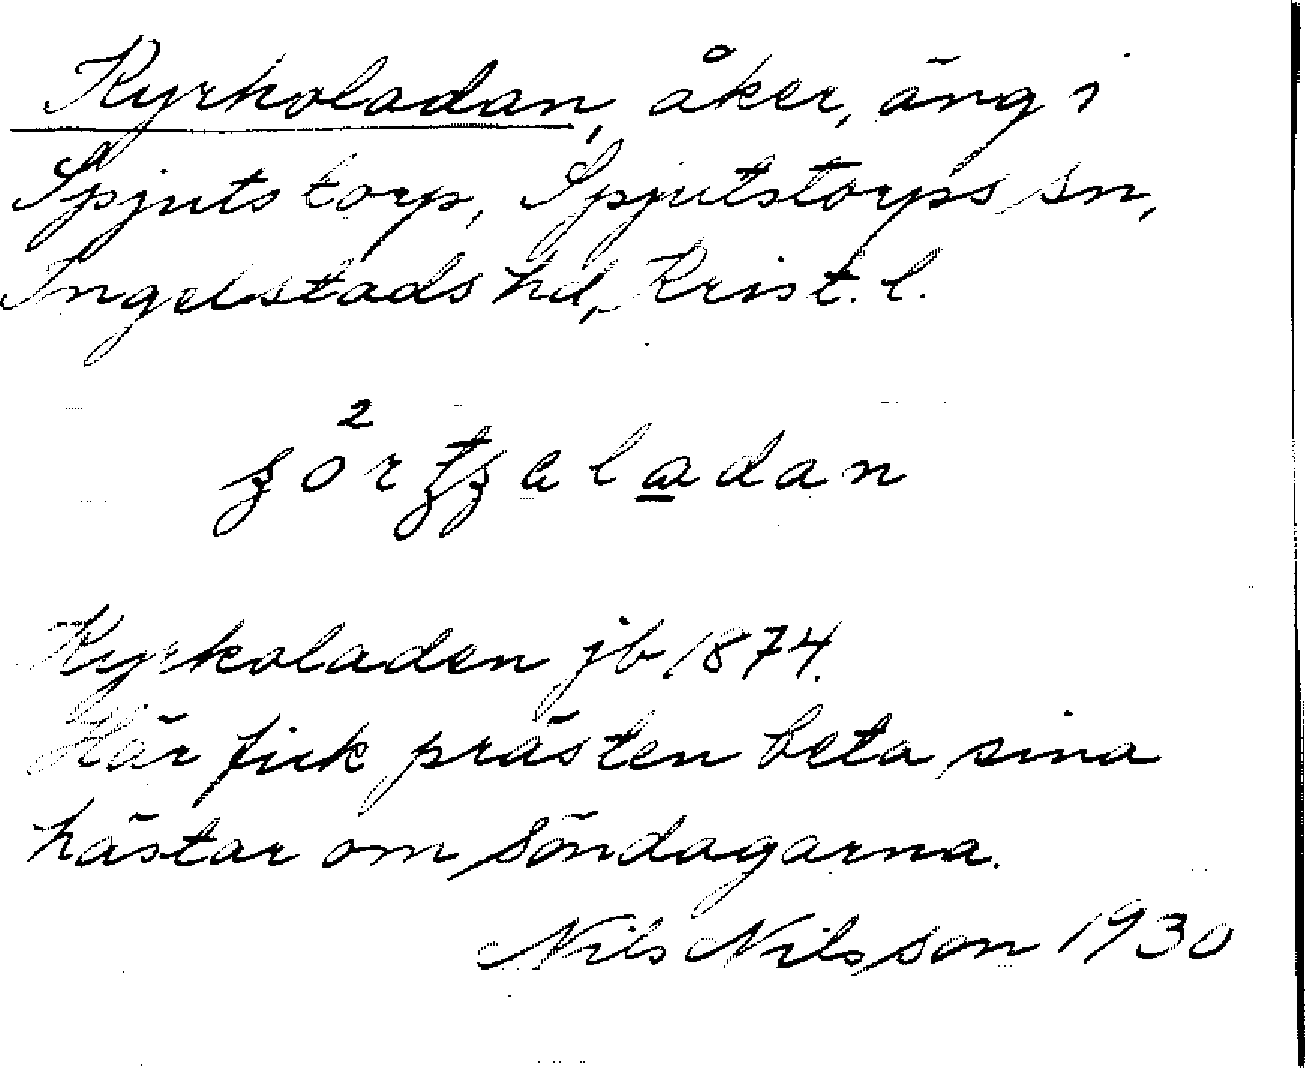 Kyrkoladan, åker, äng i
Spjutstorp, Spjutstorps sn,
Ingelstads hd, Krist. l.
Kyrkoladen jb 1874.
Här fick prästen beta sina
hästar om söndagarna.
Nils Nilsson 1930